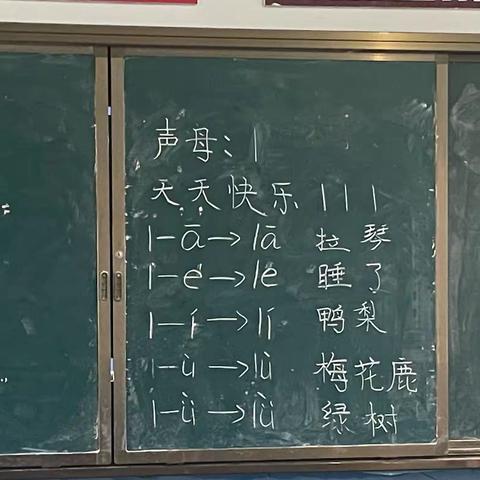 声母：l
天天快乐 l l l
l-ā→lā 拉琴
l-è→lè 睡了
l-í→lí 鸭梨
l-ù→lù 梅花鹿
l-ǜ→lǜ 绿树